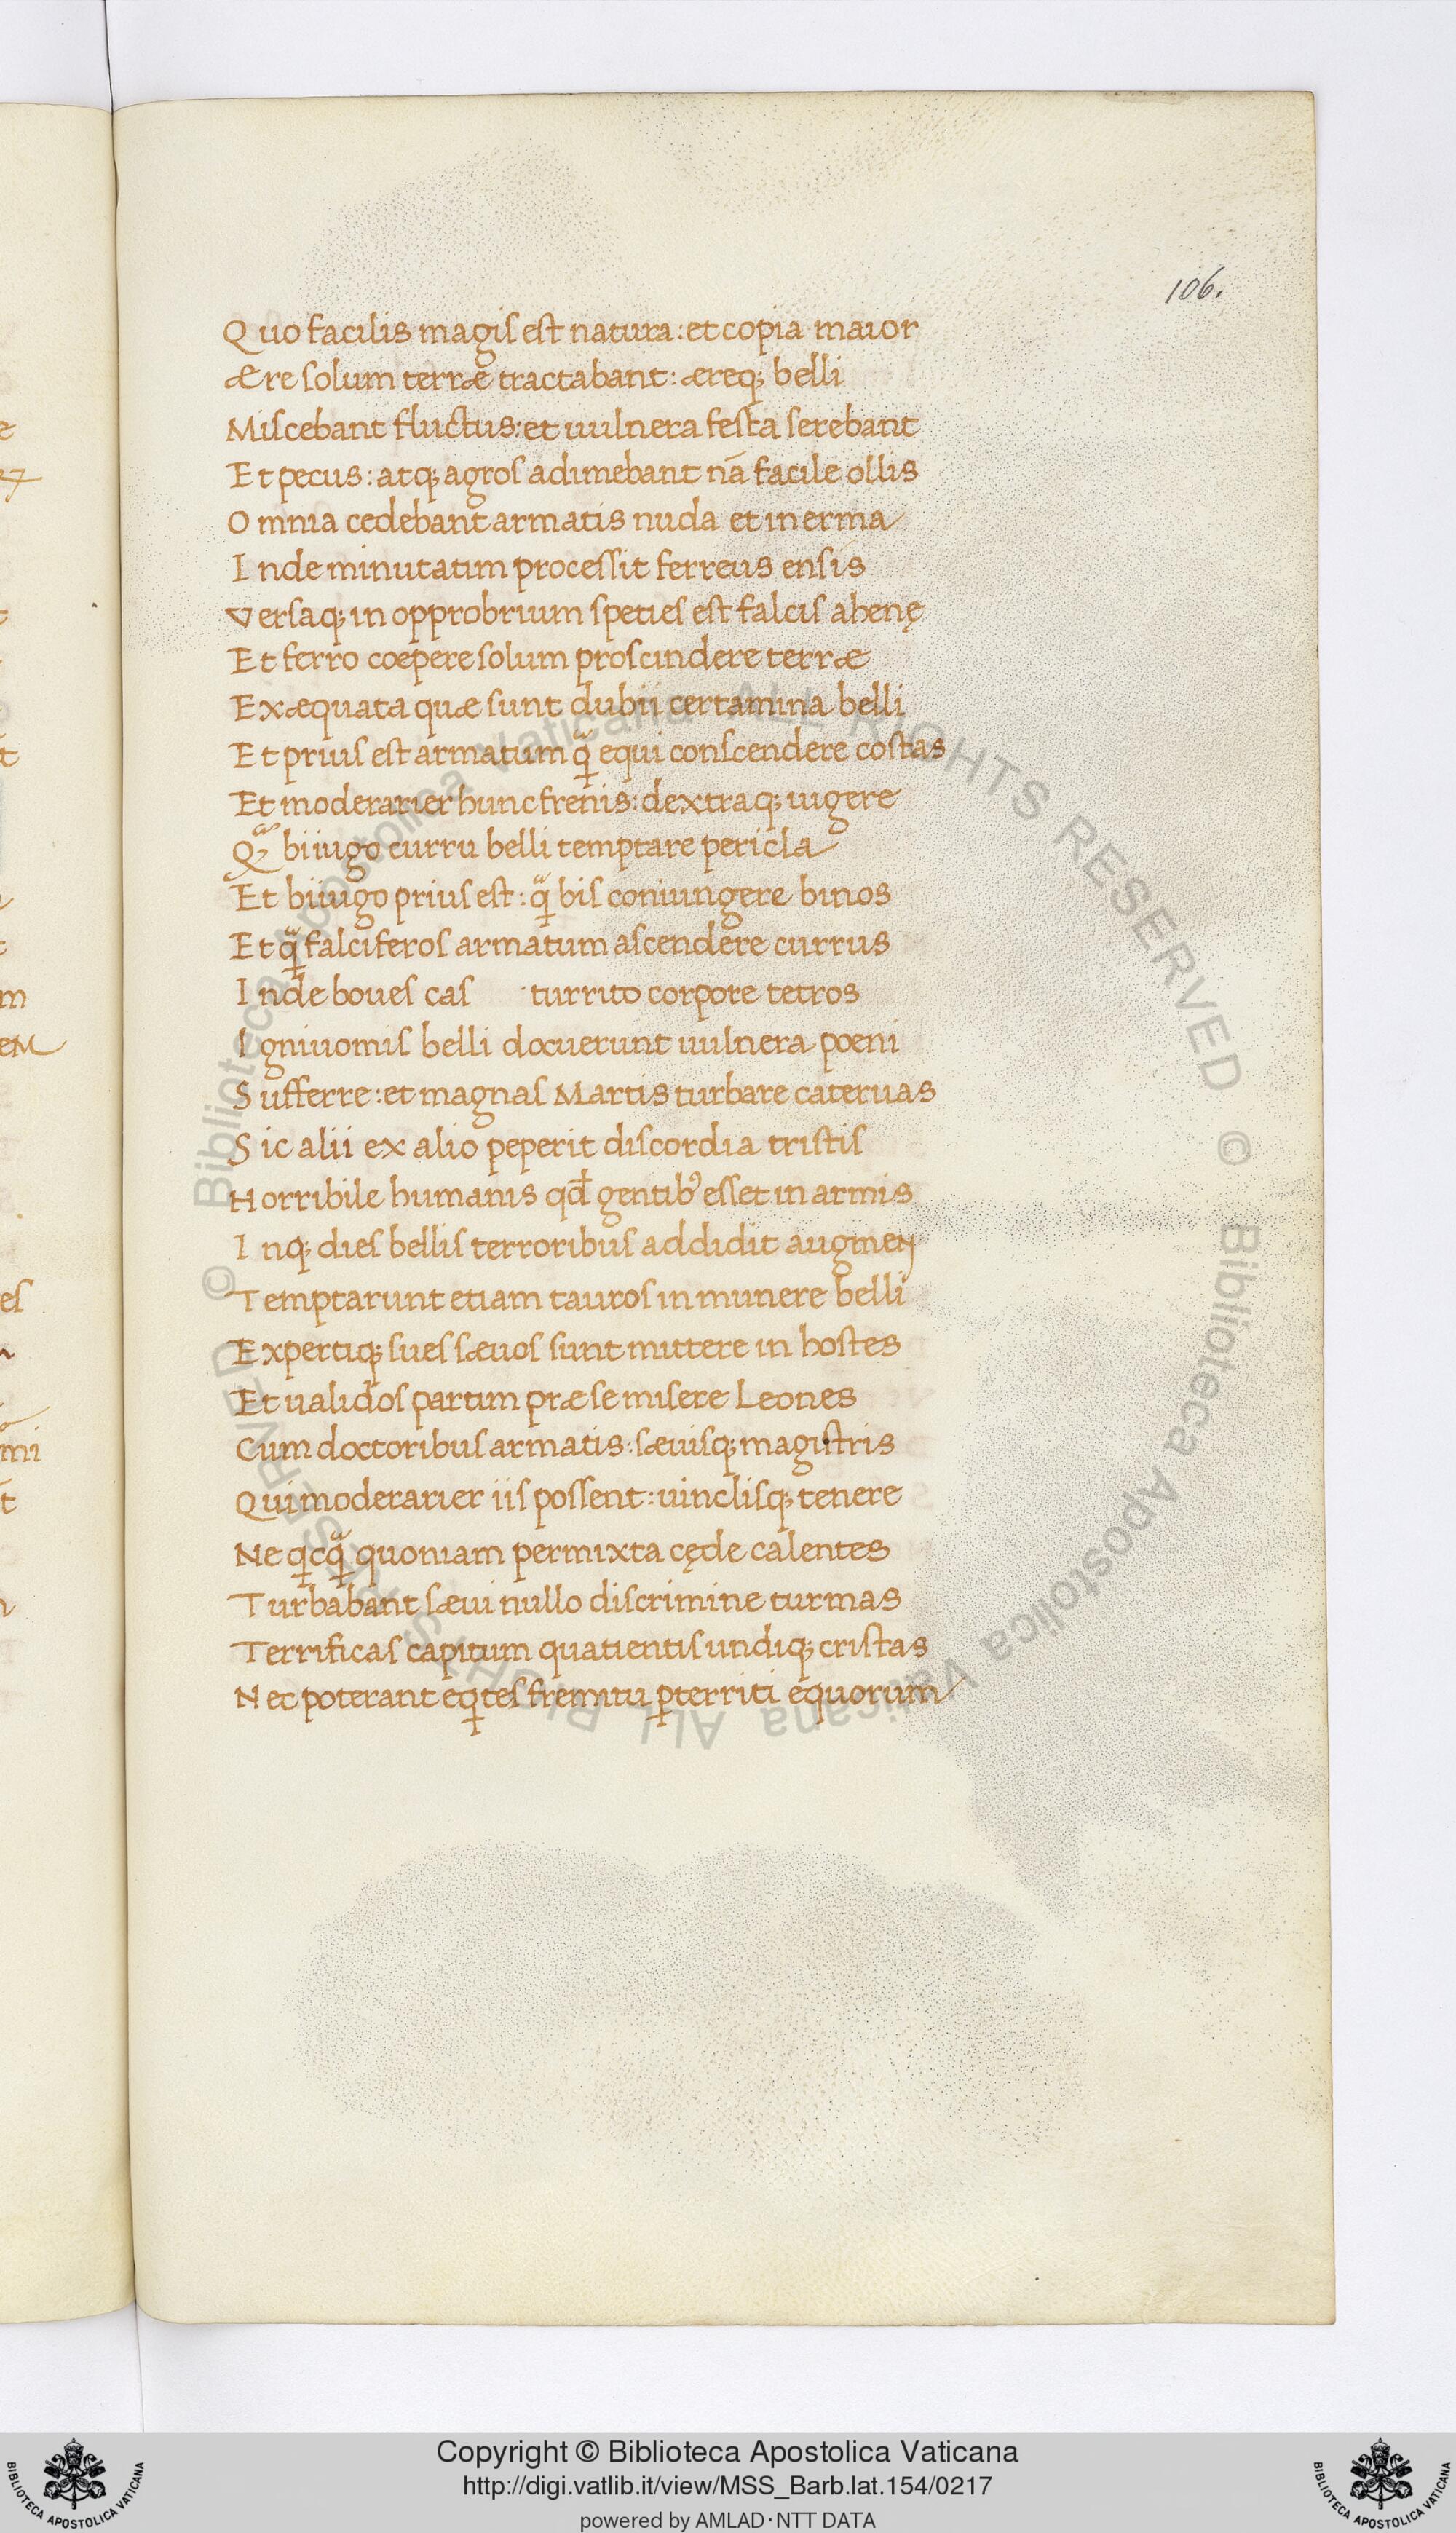 106.
Quo facilis magis est natura: et copia maior
Ære solum terræ tractabant: æreq; belli
Miscebant fluctus: et uulnera festa serebant
Et pecus: atq; agros adimebant nā facile ollis
Omnia cedebant armatis nuda et inerma
Inde minutatim processit ferreus ensis
Versaq; in opprobrium speties est falcis ahenę
Et ferro coepere solum proscindere terræ
Exæquata quæ sunt dubii certamina belli
Et prius est armatum qᷓ equi conscendere costas
Et moderarier hunc frenis: dextraq; uigere
Qᷓ biiugo curru belli temptare pericla
Et biiugo prius est: qᷓ bis coniungere binos
Et qᷓ falciferos armatum ascendere currus
Inde boues cas turrito corpore tetros
Igniuomis belli docuerunt uulnera poeni
Sufferre: et magnas Martis turbare cateruas
Sic alii ex alio peperit discordia tristis
Horribile humanis qđ gentib᾽ esset in armis
Inq; dies bellis terroribus addidit augmen
Temptarunt etiam tauros in munere belli
Expertiq; sues sæuos sunt mittere in hostes
Et ualidos partim præ se misere Leones
Cum doctoribus armatis: sæuisq; magistris
Qui moderarier iis possent: uinclisq; tenere
Ne qͥcqᷓ quoniam permixta cęde calentes
Turbabant sæui nullo discrimine turmas
Terrificas capitum quatientis undiq; cristas
Nec poterant eqͥtes fremitu ꝑterriti equorum
© Biblioteca Apostolica Vaticana ALL RIGHTS RESERVED © Biblioteca Apostolica Vaticana ALL RIGHTS RESERVED
BIBLIOTECA APOSTOLICA VATICANA
Copyright © Biblioteca Apostolica Vaticana
http://digi.vatlib.it/view/MSS_Barb.lat.154/0217
powered by AMLAD·NTT DATA
BIBLIOTECA APOSTOLICA VATICANA